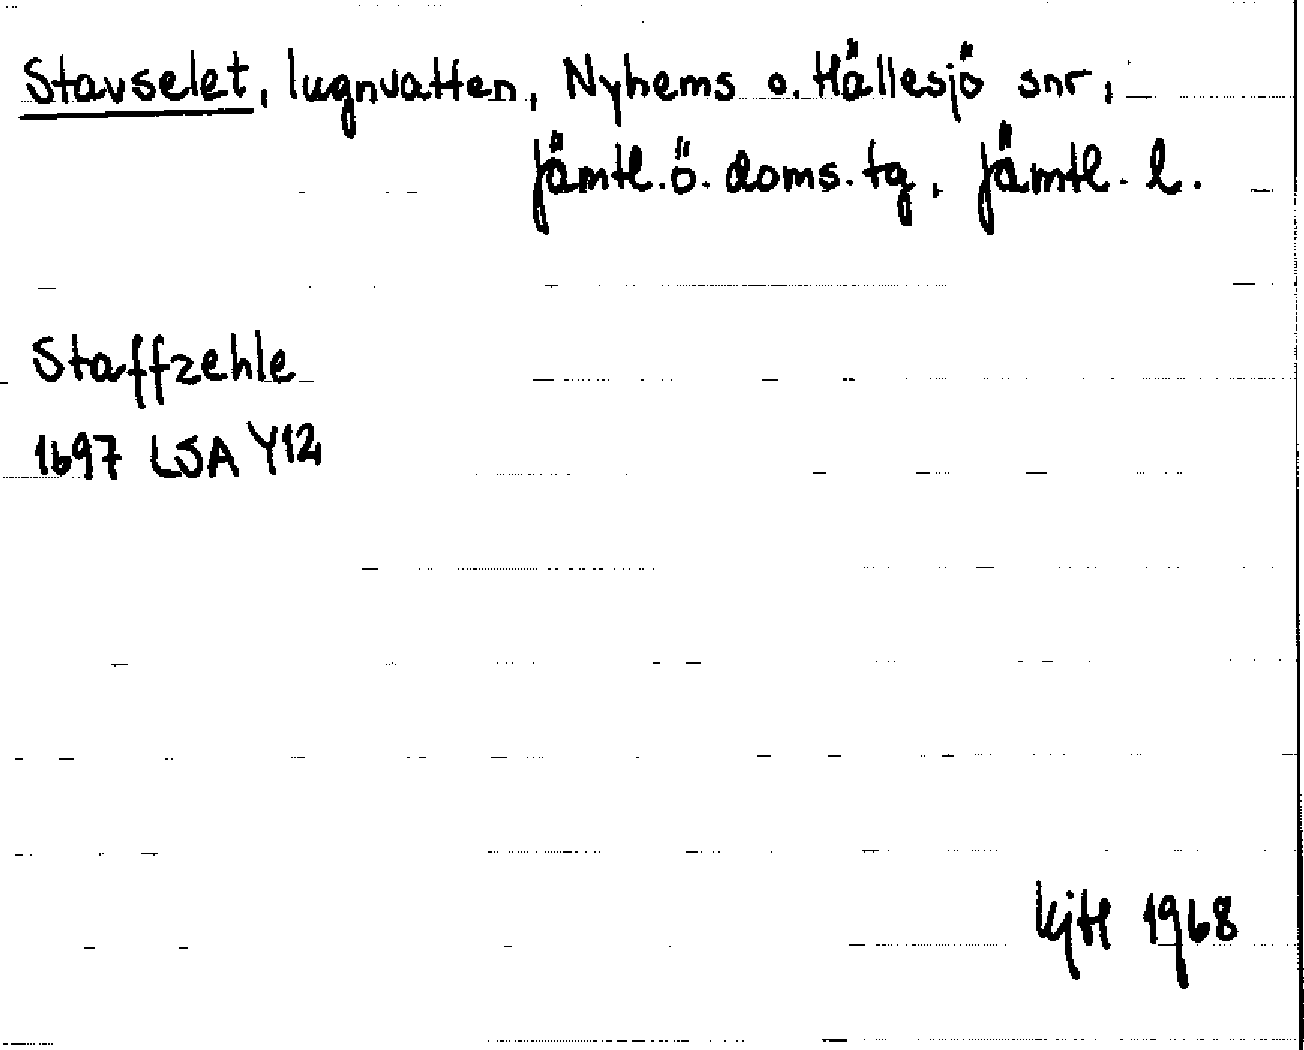 Stavselet, lugnvatten, Nyhems o. Hällesjö snr,
Jämtl. ö. doms. tg, Jämtl. l.
Staffzehle
1697 LSA Y12
1968